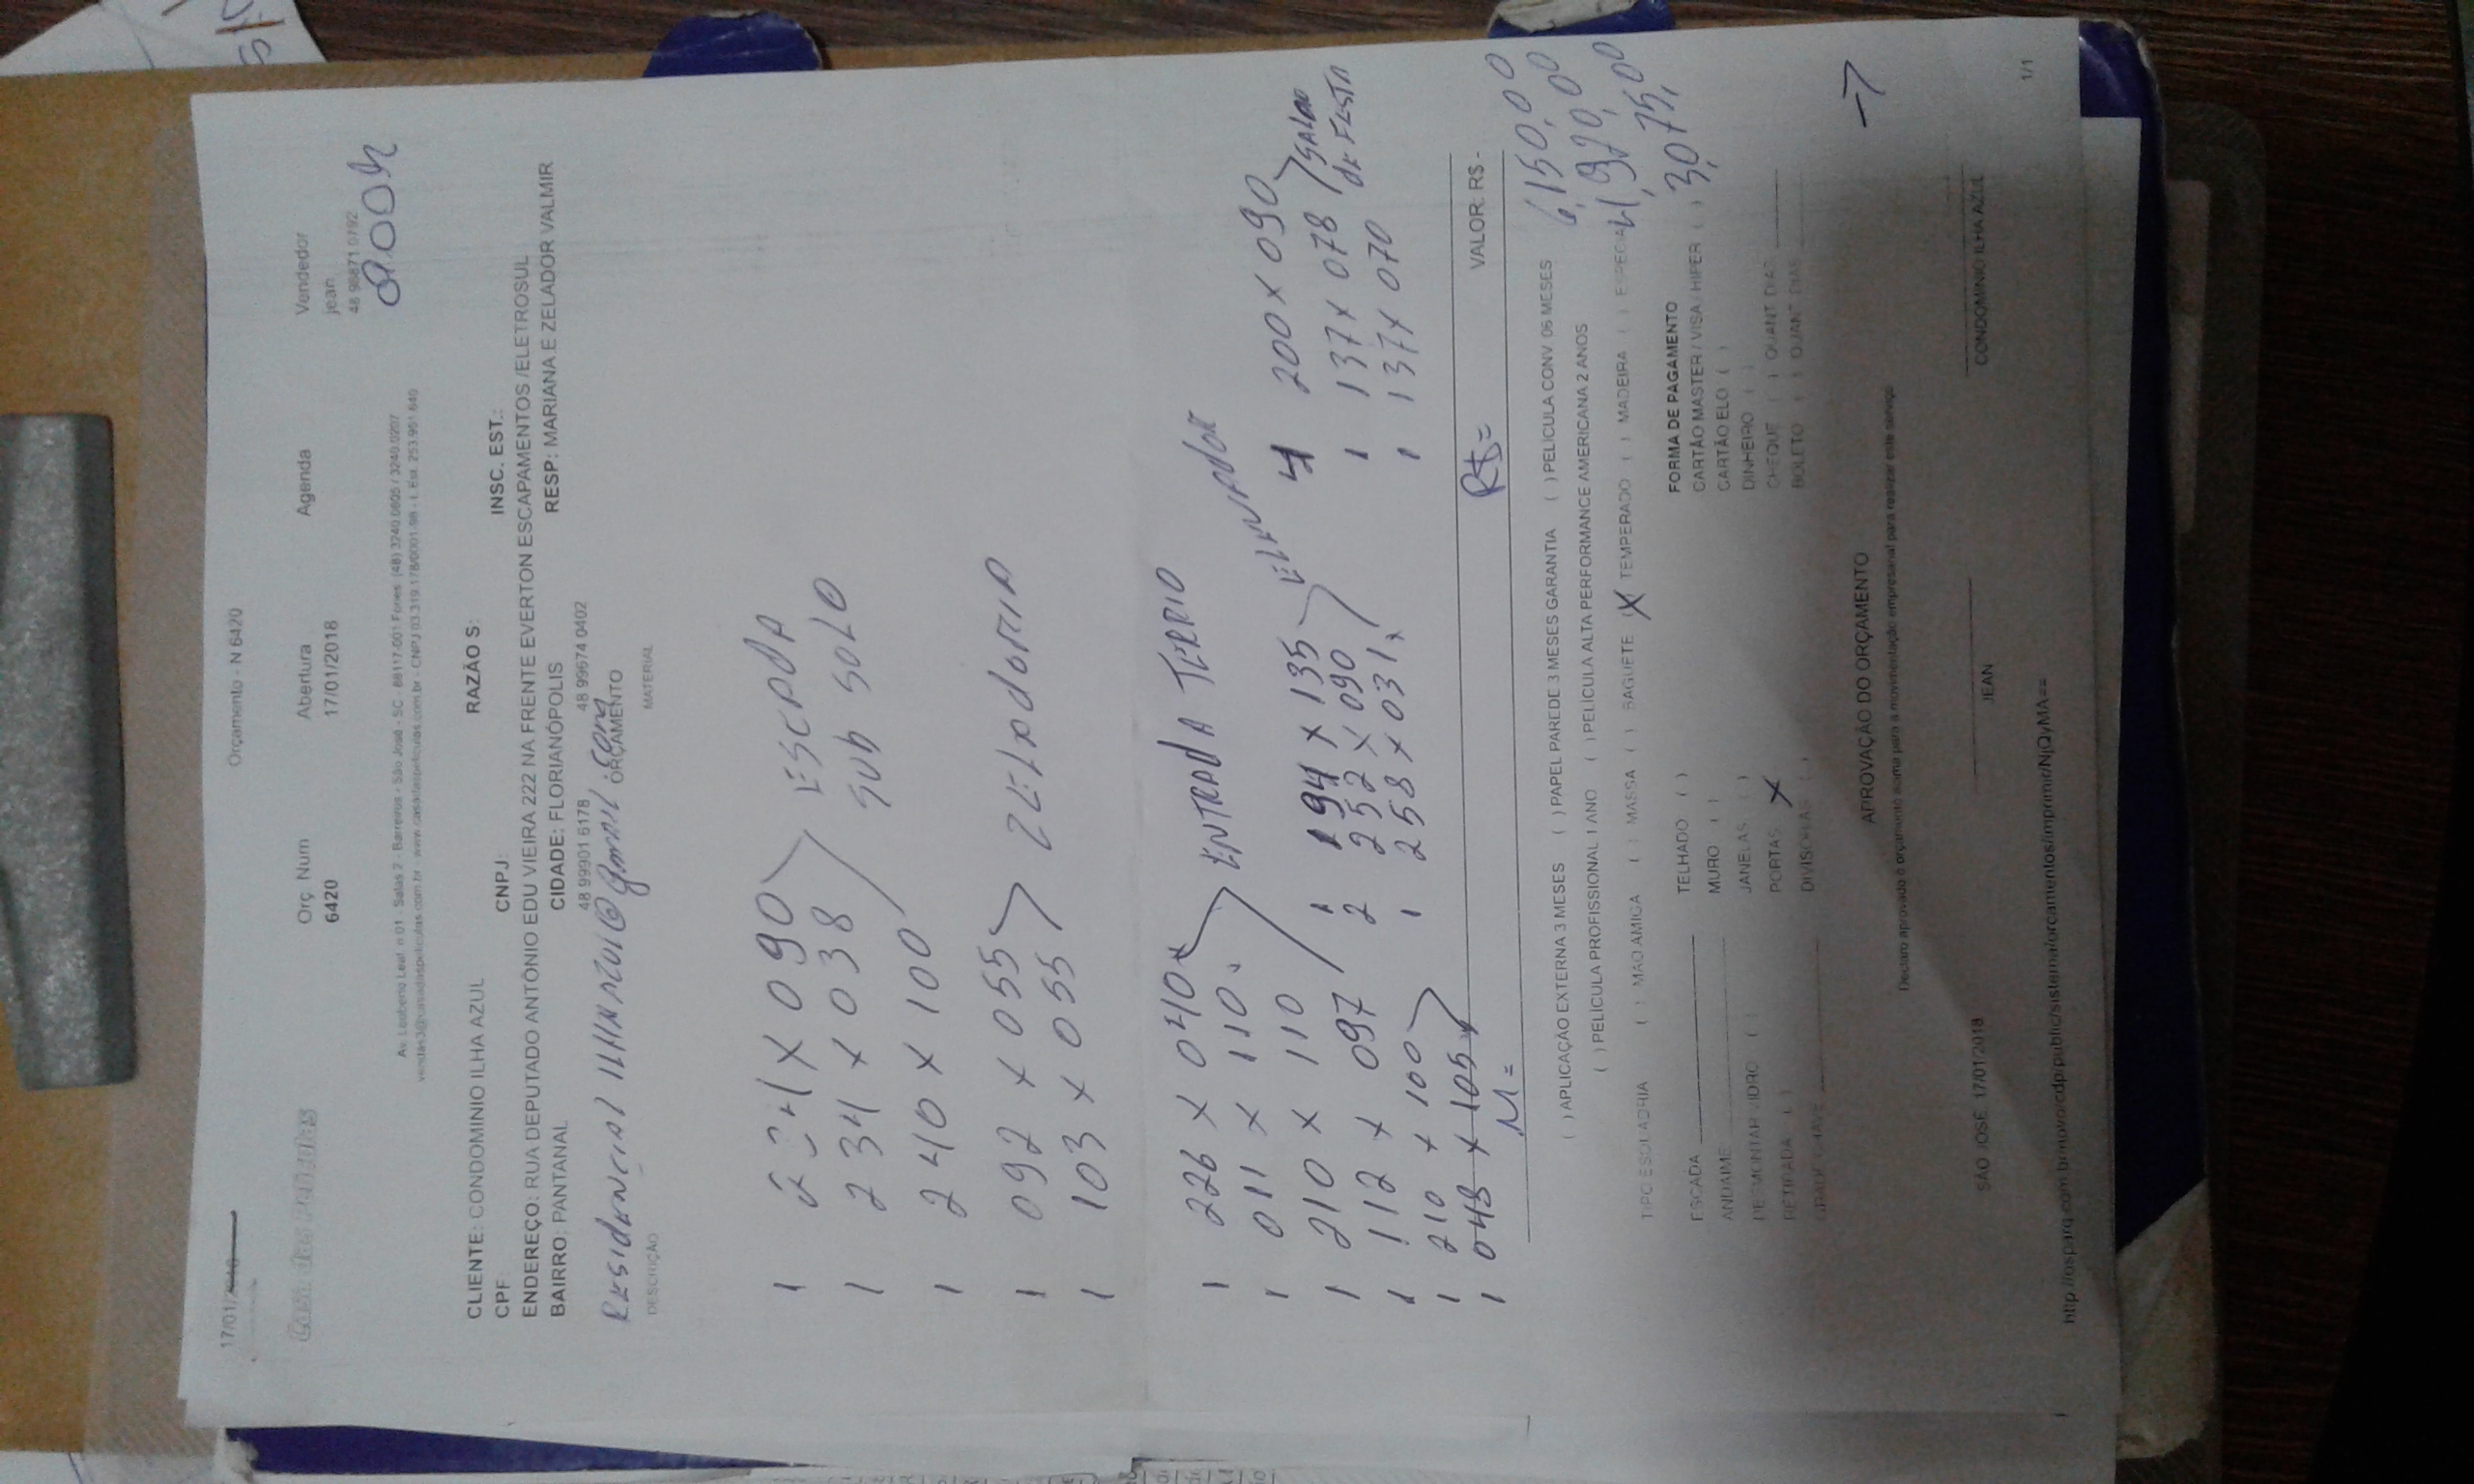 17/01/2018
Orçamento - N 6420
Casa das películas
Orç Num
6420
Abertura
17/01/2018
Agenda
Vendedor
jean
48 98871 0792
9:00h
Av. Leoberto Leal n 01 - Salas 2 - Barreiros - São José - SC - 88117-001 Fones: (48) 3240.0805 / 3240.0207
CLIENTE: CONDOMINIO ILHA AZUL RAZÃO S:
CPF CNPJ: INSC. EST.:
ENDEREÇO: RUA DEPUTADO ANTÔNIO EDU VIEIRA 222 NA FRENTE EVERTON ESCAPAMENTOS /ELETROSUL
BAIRRO: PANTANAL CIDADE: FLORIANÓPOLIS RESP: MARIANA E ZELADOR VALMIR
48 99901 6178 48 99674 0402
ORÇAMENTO
DESCRIÇÃO MATERIAL
ESCADA
1 234 x 038 SUB SOLO
1 240 x 100
1 092 x 055 ZELADORIA
1 103 x 055
1 226 x 040 ENTRADA TÉRRIO
1 011 x 110
1 210 x 110
1 112 x 097
1 210 x 100
1 048 x 105
1 194 x 135 ELEVADOR
2 252 x 090
1 258 x 031
4 200 x 090 SALÃO
1 137 x 078 de FESTA
1 137 x 070
M= R$= VALOR: R$ -
6,150,00
4,920,00
3,075,00
( ) APLICAÇÃO EXTERNA 3 MESES ( ) PAPEL PAREDE 3 MESES GARANTIA ( ) PELÍCULA CONV 06 MESES
( ) PELÍCULA PROFISSIONAL 1 ANO ( ) PELÍCULA ALTA PERFORMANCE AMERICANA 2 ANOS
TIPO ESQUADRIA ( ) MAO AMIGA ( ) MASSA ( ) BAGUETE (X) TEMPERADO ( ) MADEIRA ( ) ESPECIAL
ESCADA
ANDAIME
DESMONTAR VIDRO ( )
RETIRADA ( )
TELHADO ( )
MURO ( )
JANELAS ( )
PORTAS X
DIVISORIAS ( )
FORMA DE PAGAMENTO
CARTÃO MASTER / VISA / HIPER ( )
CARTÃO ELO ( )
DINHEIRO ( )
CHEQUE ( ) QUANT DIAS
BOLETO ( ) QUANT DIAS
APROVAÇÃO DO ORÇAMENTO
Declaro aprovado o orçamento acima para a movimentação empresarial para realizar este serviço
SÃO JOSÉ 17/01/2018
JEAN
CONDOMINIO ILHA AZUL
1/1